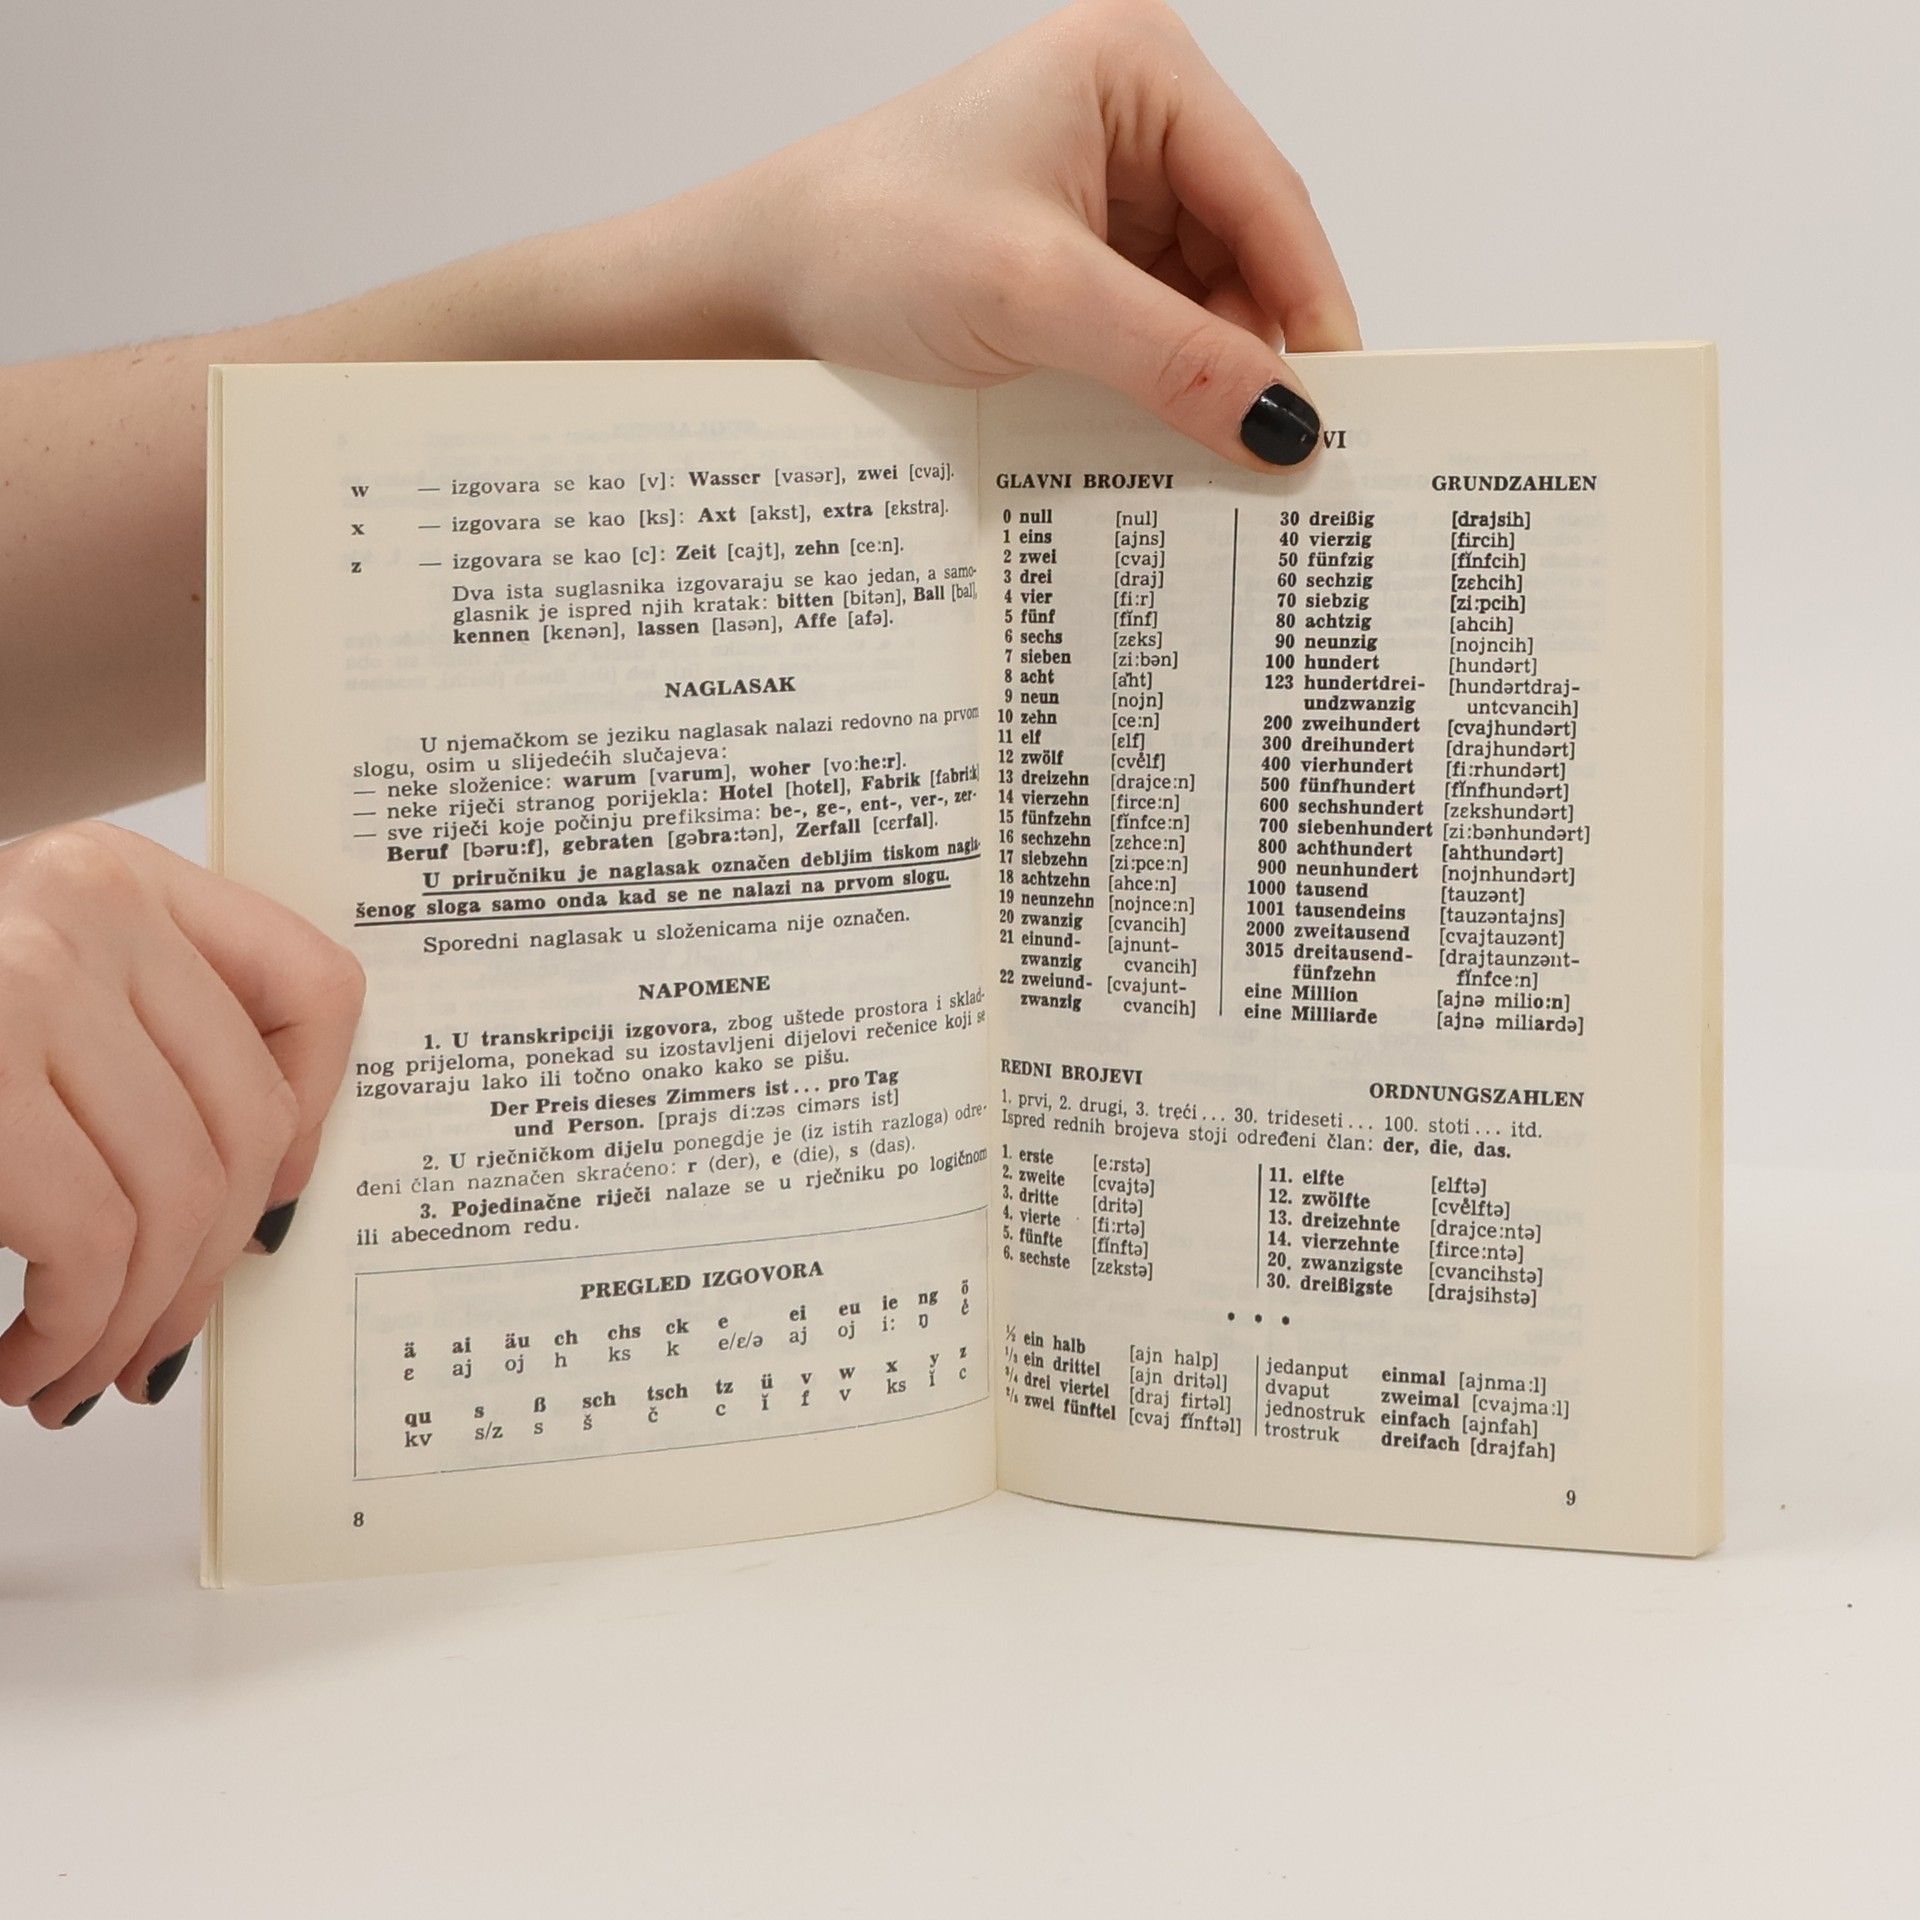 w — izgovara se kao [v]: Wasser [vasər], zwei [cvaj].
x — izgovara se kao [ks]: Axt [akst], extra [ɛkstra].
z — izgovara se kao [c]: Zeit [cajt], zehn [ce:n].
Dva ista suglasnika izgovaraju se kao jedan, a samo-
glasnik je ispred njih kratak: bitten [bitən], Ball [bal],
kennen [kɛnən], lassen [lasən], Affe [afə].
NAGLASAK
U njemačkom se jeziku naglasak nalazi redovno na prvom
slogu, osim u slijedećih slučajeva:
— neke složenice: warum [varum], woher [vo:he:r].
— neke riječi stranog porijekla: Hotel [hotɛl], Fabrik [fabri:k]
— sve riječi koje počinju prefiksima: be-, ge-, ent-, ver-, zer-
Beruf [bəru:f], gebraten [gəbra:tən], Zerfall [cɛrfal].
U priručniku je naglasak označen debljim tiskom nagla-
šenog sloga samo onda kad se ne nalazi na prvom slogu.
Sporedni naglasak u složenicama nije označen.
NAPOMENE
1. U transkripciji izgovora, zbog uštede prostora i sklad-
nog prijeloma, ponekad su izostavljeni dijelovi rečenice koji se
izgovaraju lako ili točno onako kako se pišu.
Der Preis dieses Zimmers ist... pro Tag
und Person. [prajs di:zəs cimərs ist]
2. U rječničkom dijelu ponegdje je (iz istih razloga) odre-
đeni član naznačen skraćeno: r (der), e (die), s (das).
3. Pojedinačne riječi nalaze se u rječniku po logičnom
ili abecednom redu.
PREGLED IZGOVORA
ä ai äu ch chs ck e ei eu ie ng ö
ɛ aj oj h ks k e/ɛ/ə aj oj i: ŋ e̊
qu s ß sch tsch tz ü v w x y z
kv s/z s š č c ǐ f v ks ǐ c
8
VI
GLAVNI BROJEVI GRUNDZAHLEN
0 null [nul]
1 eins [ajns]
2 zwei [cvaj]
3 drei [draj]
4 vier [fi:r]
5 fünf [fǐnf]
6 sechs [zɛks]
7 sieben [zi:bən]
8 acht [aht]
9 neun [nojn]
10 zehn [ce:n]
11 elf [ɛlf]
12 zwölf [cve̊lf]
13 dreizehn [drajce:n]
14 vierzehn [firce:n]
15 fünfzehn [fǐnfce:n]
16 sechzehn [zɛhce:n]
17 siebzehn [zi:pce:n]
18 achtzehn [ahce:n]
19 neunzehn [nojnce:n]
20 zwanzig [cvancih]
21 einund- [ajnunt-
zwanzig cvancih]
22 zweiund- [cvajunt-
zwanzig cvancih]
30 dreißig [drajsih]
40 vierzig [fircih]
50 fünfzig [fǐnfcih]
60 sechzig [zɛhcih]
70 siebzig [zi:pcih]
80 achtzig [ahcih]
90 neunzig [nojncih]
100 hundert [hundərt]
123 hundertdrei- [hundərtdraj-
undzwanzig untcvancih]
200 zweihundert [cvajhundərt]
300 dreihundert [drajhundərt]
400 vierhundert [fi:rhundərt]
500 fünfhundert [fǐnfhundərt]
600 sechshundert [zɛkshundərt]
700 siebenhundert [zi:bənhundərt]
800 achthundert [ahthundərt]
900 neunhundert [nojnhundərt]
1000 tausend [tauzənt]
1001 tausendeins [tauzəntajns]
2000 zweitausend [cvajtauzənt]
3015 dreitausend- [drajtaunzənt-
fünfzehn fǐnfce:n]
eine Million [ajnə milio:n]
eine Milliarde [ajnə miliardə]
REDNI BROJEVI ORDNUNGSZAHLEN
1. prvi, 2. drugi, 3. treći... 30. trideseti... 100. stoti... itd.
Ispred rednih brojeva stoji određeni član: der, die, das.
1. erste [e:rstə]
2. zweite [cvajtə]
3. dritte [dritə]
4. vierte [fi:rtə]
5. fünfte [fǐnftə]
6. sechste [zɛkstə]
11. elfte [ɛlftə]
12. zwölfte [cve̊lftə]
13. dreizehnte [drajce:ntə]
14. vierzehnte [firce:ntə]
20. zwanzigste [cvancihstə]
30. dreißigste [drajsihstə]
• • •
½ ein halb [ajn halp]
1/3 ein drittel [ajn dritəl]
3/4 drei viertel [draj firtəl]
2/5 zwei fünftel [cvaj fǐnftəl]
jedanput einmal [ajnma:l]
dvaput zweimal [cvajma:l]
jednostruk einfach [ajnfah]
trostruk dreifach [drajfah]
9